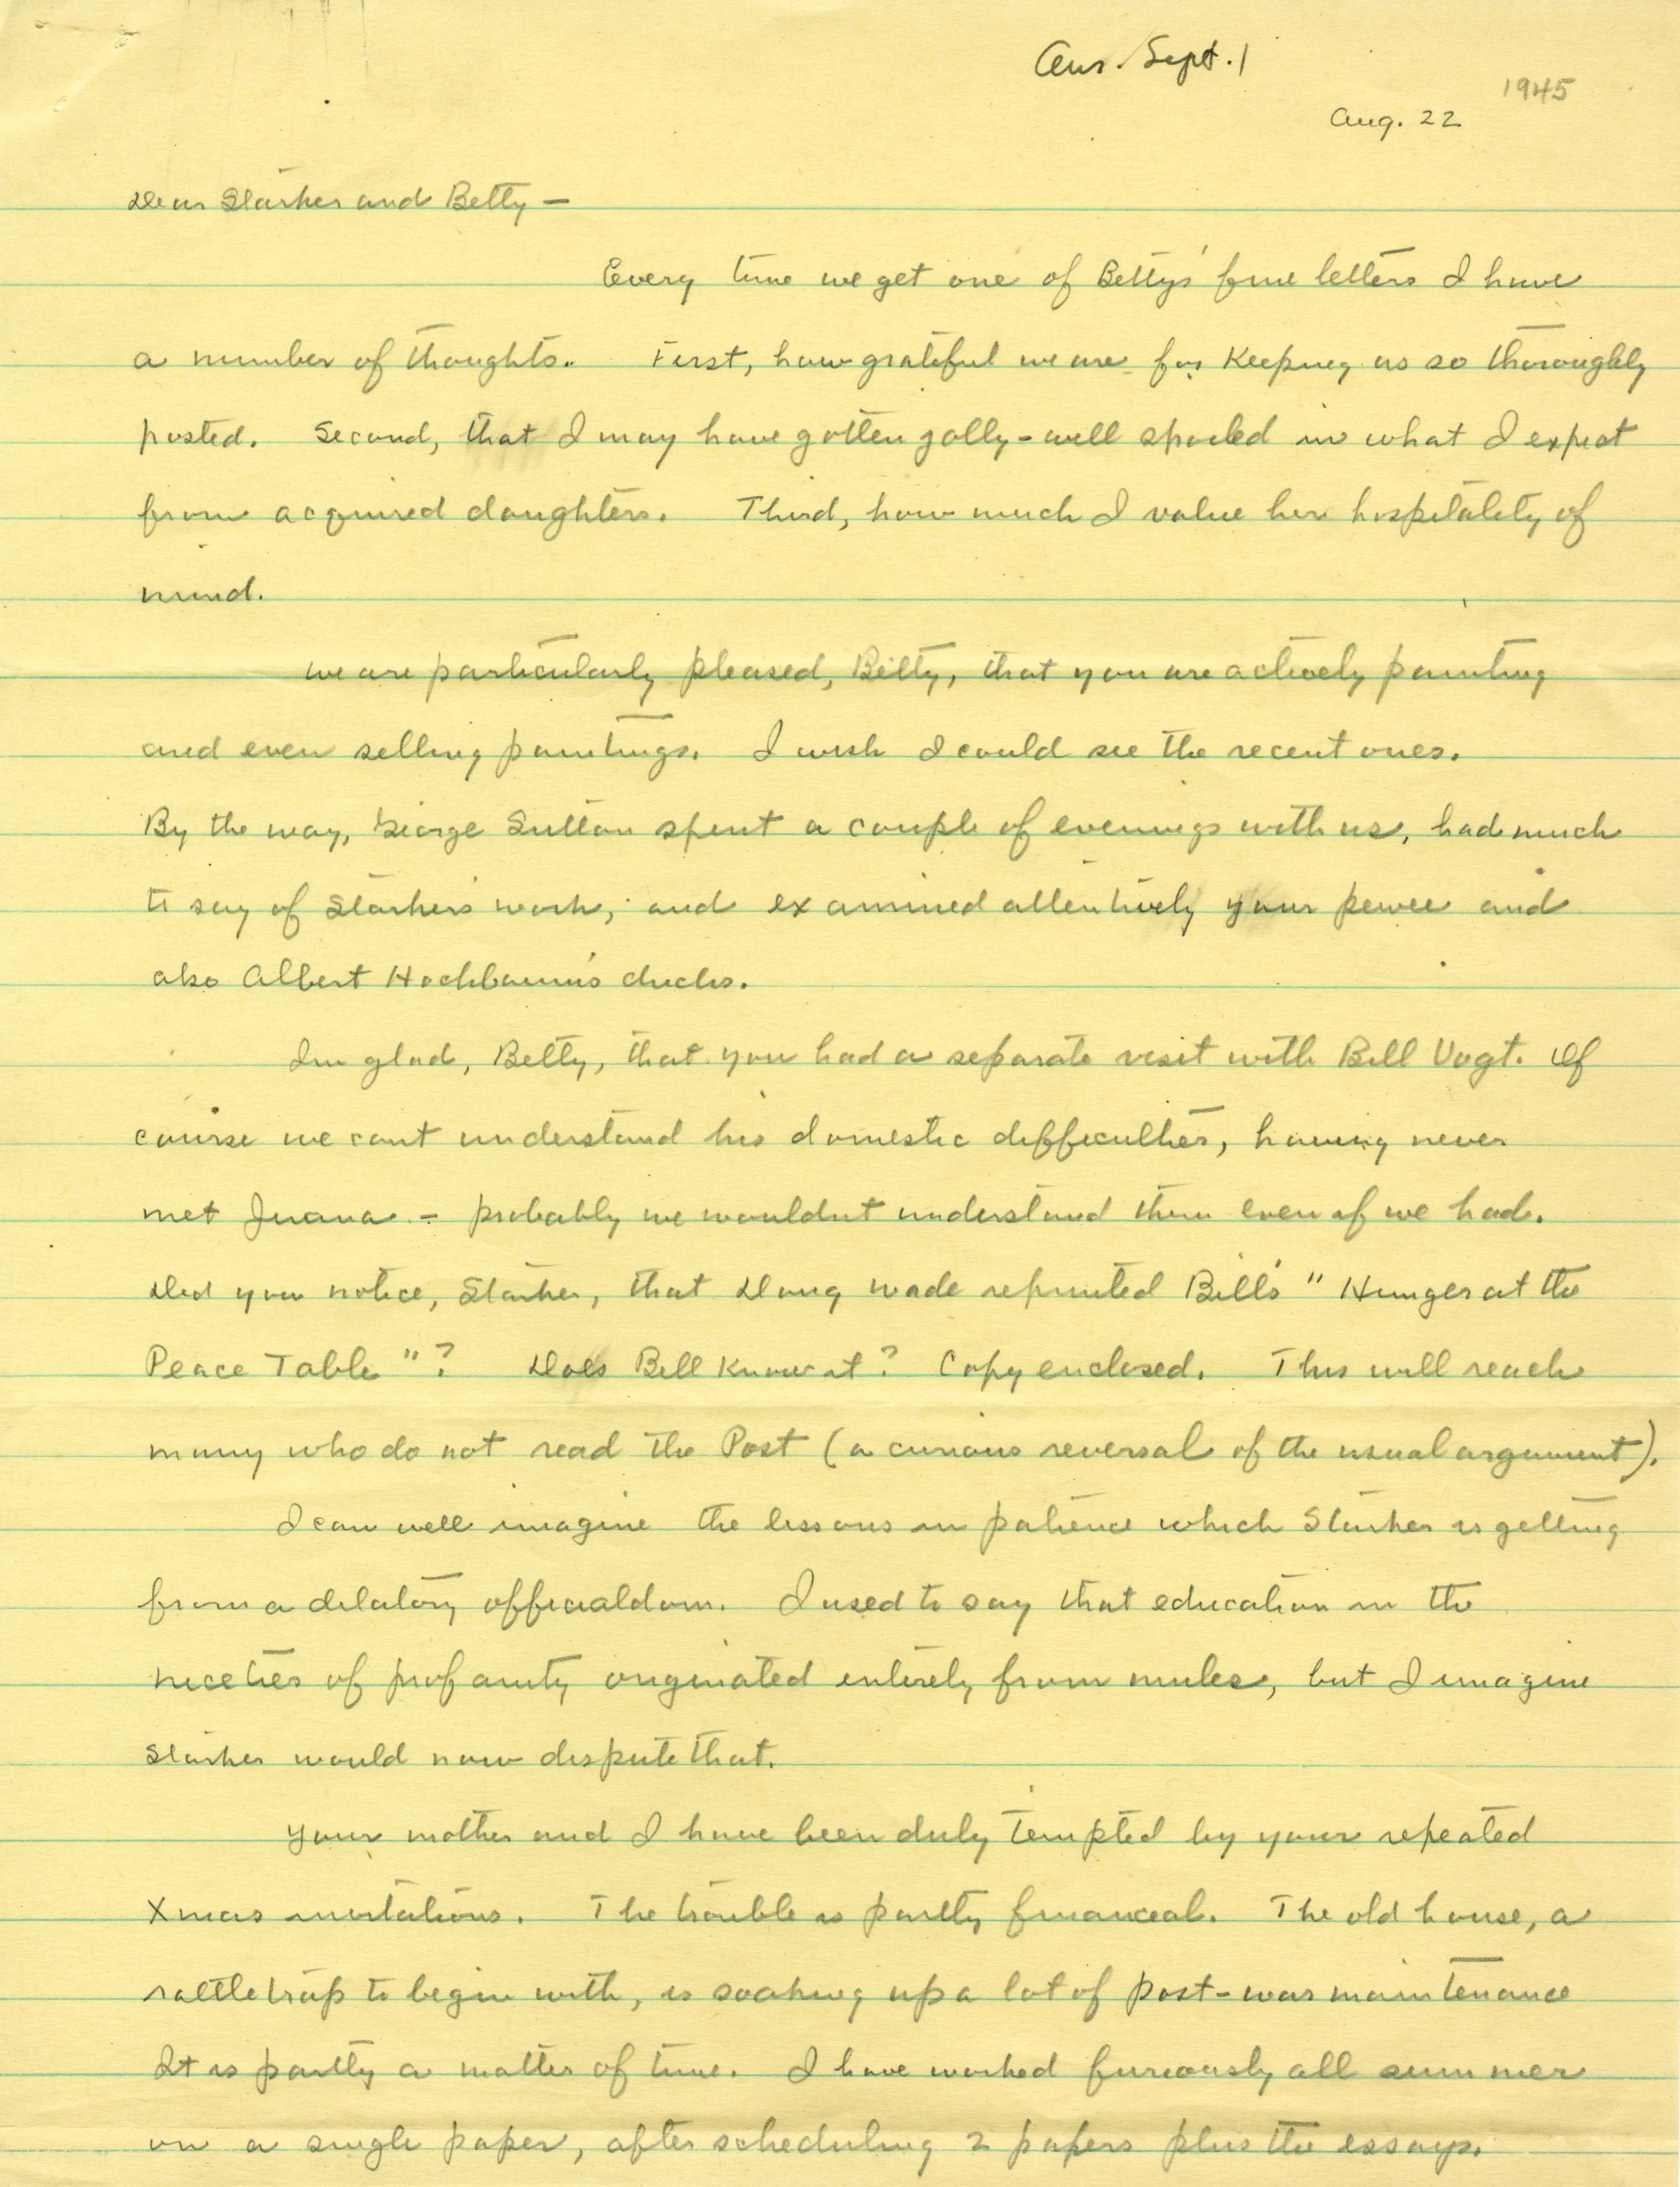 Ans. Sept. 1
1945
Aug. 22
Dear Starker and Betty –
Every time we get one of Bettys' fine letters I have
a number of thoughts. First, how grateful we are for keeping us so thoroughly
posted. Second, that I may have gotten jolly-well spoiled in what I expect
from acquired daughters. Third, how much I value her hospitality of
mind.
We are particularly pleased, Betty, that you are actively painting
and even selling paintings. I wish I could see the recent ones.
By the way, George Sutton spent a couple of evenings with us, had much
to say of Starker's work, and examined attentively your pewee and
also Albert Hochbaum's ducks.
Im glad, Betty, that you had a separate visit with Bill Vogt. Of
course we cant understand his domestic difficulties, having never
met Juana – probably we wouldnt understand them even if we had.
Did you notice, Starker, that Doug Wade reprinted Bill's "Hunger at the
Peace Table"? Does Bill know it? Copy enclosed. This will reach
many who do not read the Post (a curious reversal of the usual argument).
I can well imagine the lessons in patience which Starker is getting
from a dilatory officialdom. I used to say that education in the
niceties of profanity originated entirely from mules, but I imagine
Starker would now dispute that.
Your mother and I have been duly tempted by your repeated
Xmas invitations. The trouble is partly financial. The old house, a
rattletrap to begin with, is soaking up a lot of post-war maintenance
It is partly a matter of time. I have worked furiously all summer
on a single paper, after scheduling 2 papers plus the essays.